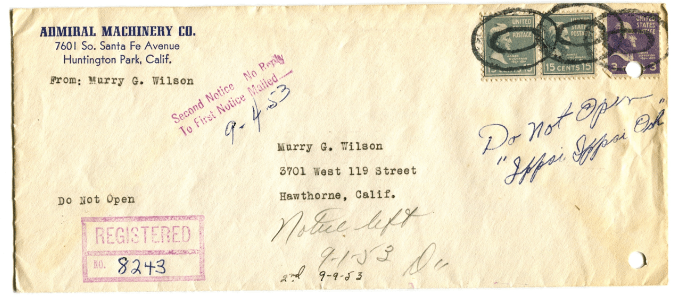 ADMIRAL MACHINERY CO.
7601 So. Santa Fe Avenue
Huntington Park, Calif.
From: Murry G. Wilson
Second Notice No Reply
To First Notice Mailed
9-4-53
UNITED STATES POSTAGE
15 CENTS 15
UNITED STATES POSTAGE
15 CENTS 15
UNITED STATES POSTAGE
3
Do Not Open
"Ippsi Ippsi Osh"
Murry G. Wilson
3701 West 119 Street
Hawthorne, Calif.
Do Not Open
REGISTERED
NO. 8243
Notice left
9-1-53
2nd 9-9-53